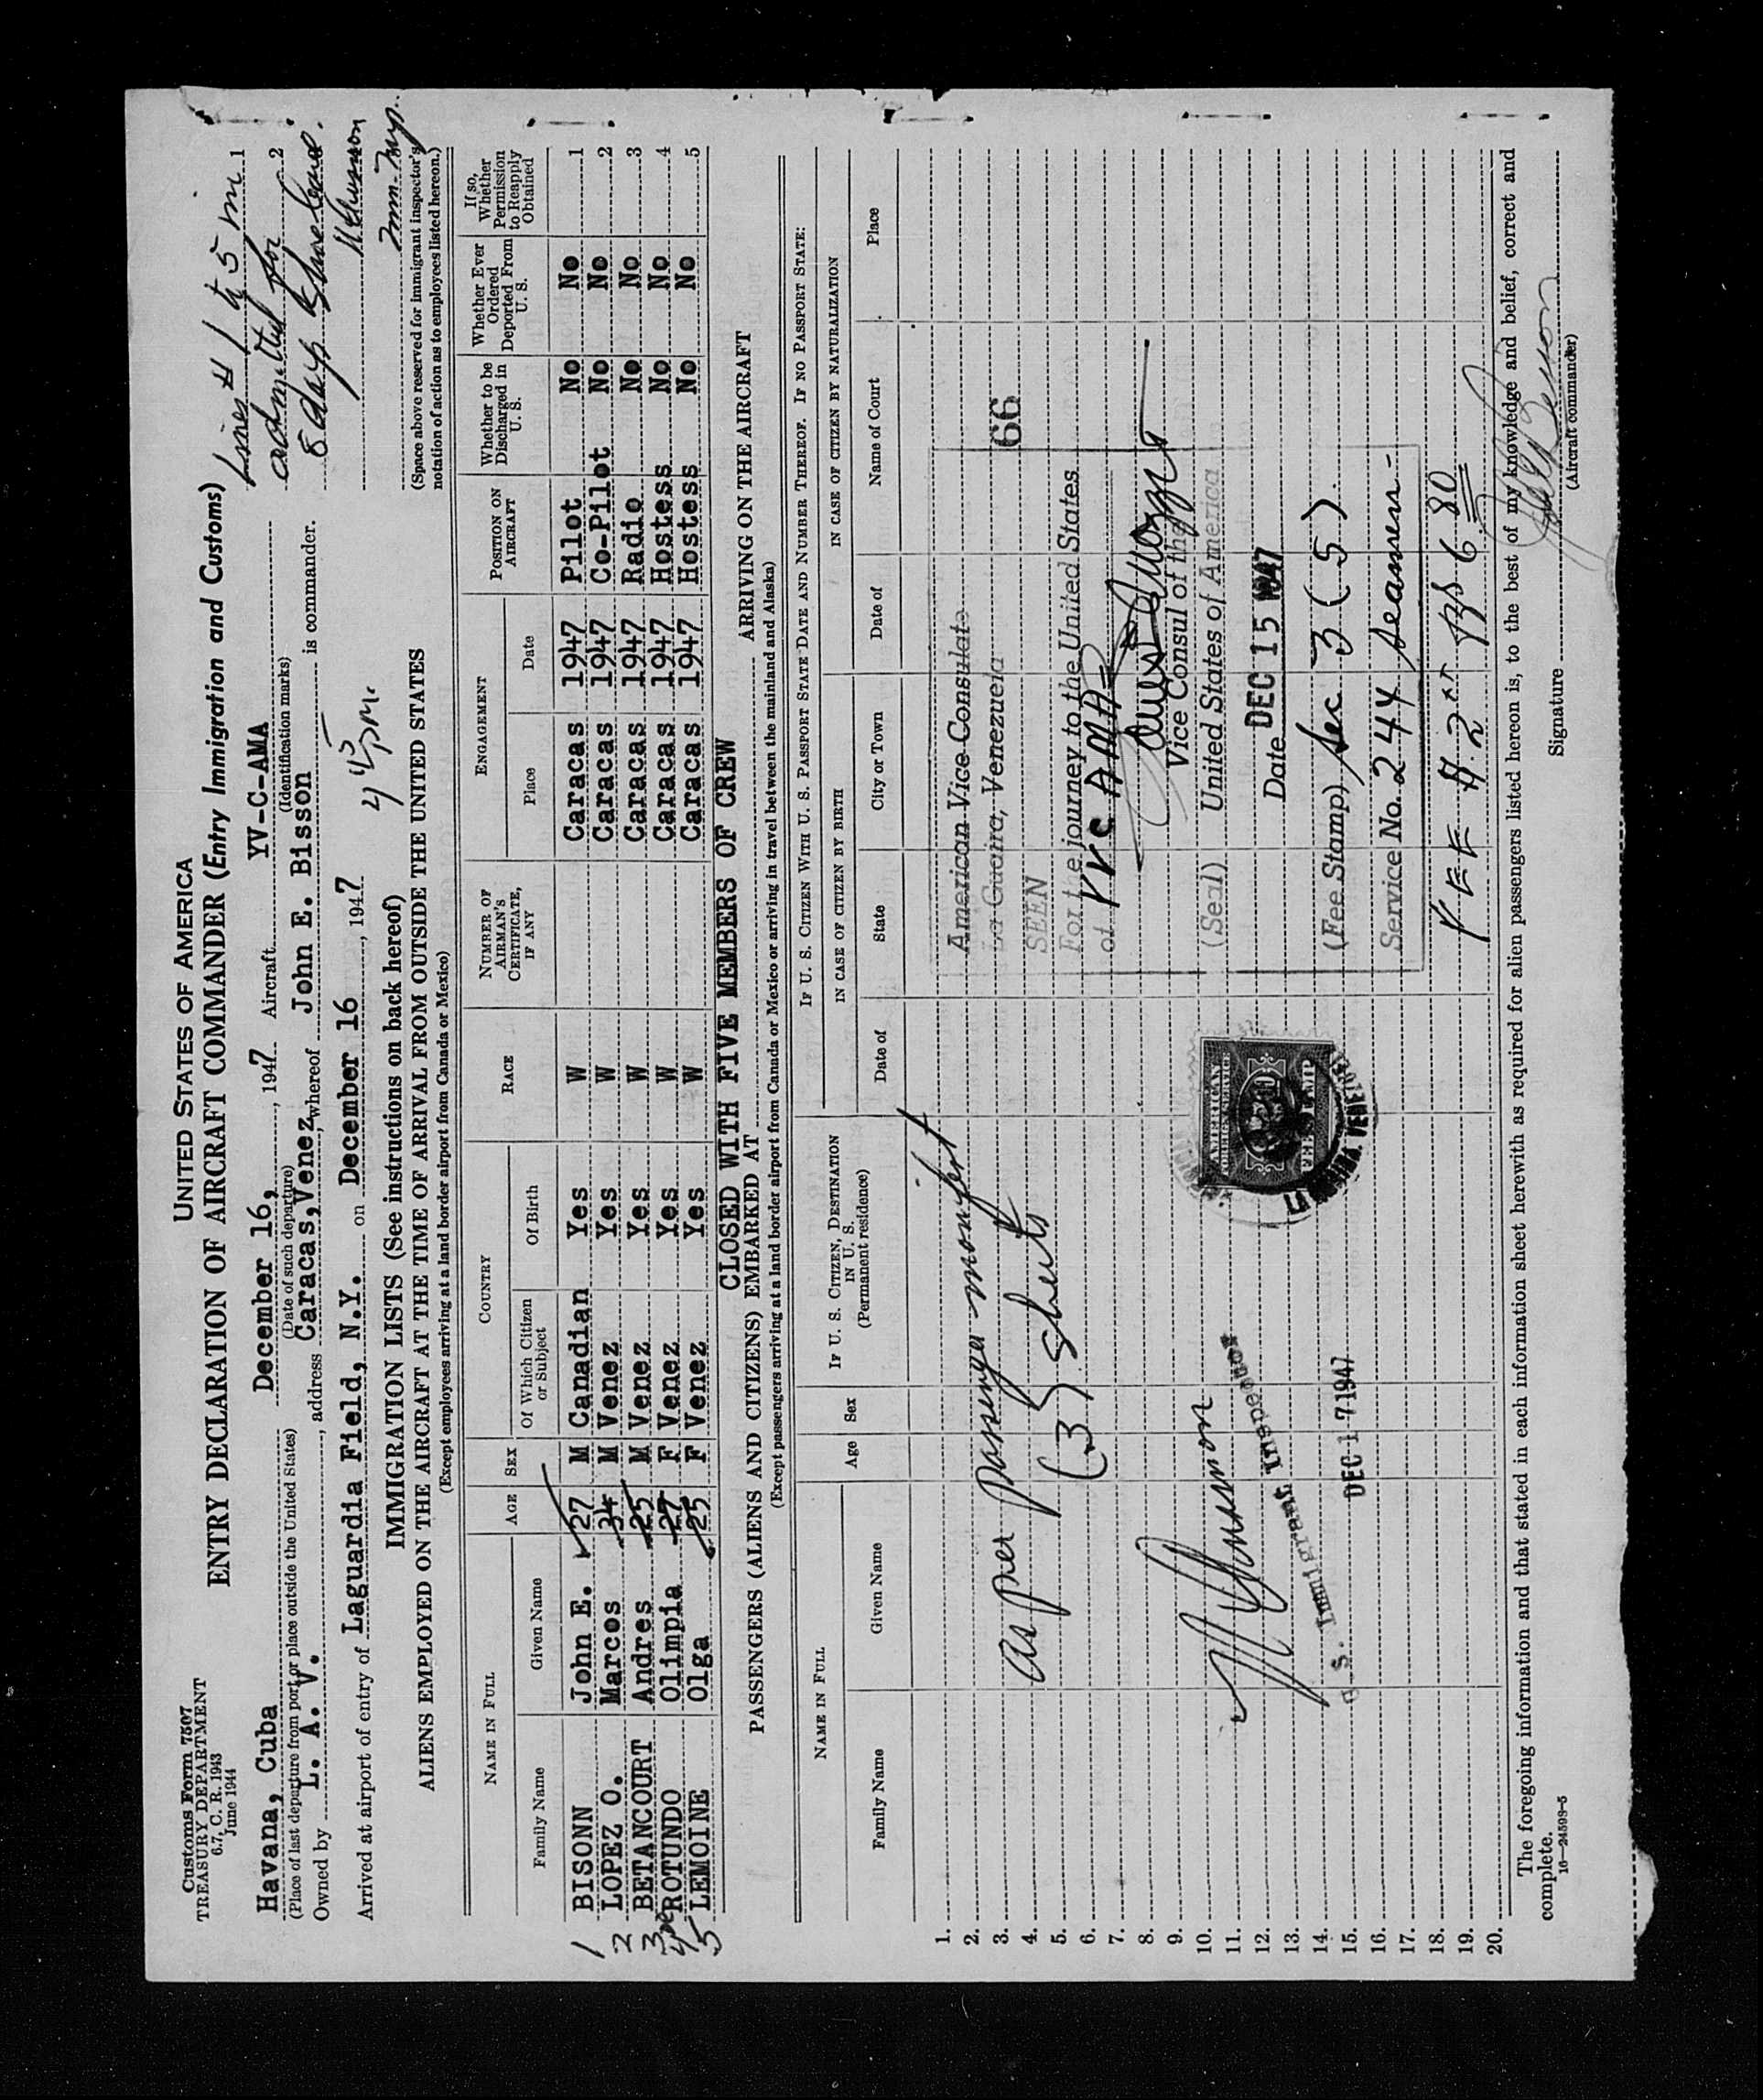 Customs Form 7507
TREASURY DEPARTMENT
6.7, C. R. 1943
June 1944
UNITED STATES OF AMERICA
ENTRY DECLARATION OF AIRCRAFT COMMANDER (Entry Immigration and Customs)
Lines # 1 to 5 in 1
admitted for 2
8 days shore leave.
Havana, Cuba December 16, , 1947 Aircraft YV-C-AMA
(Place of last departure from port or place outside the United States) (Date of such departure) (Identification marks)
Owned by L. A. V. , address Caracas, Venez, whereof John E. Bisson is commander.
Arrived at airport of entry of Laguardia Field, N.Y. on December 16 , 1947
4 45 pm.
IMMIGRATION LISTS (See instructions on back hereof)
ALIENS EMPLOYED ON THE AIRCRAFT AT THE TIME OF ARRIVAL FROM OUTSIDE THE UNITED STATES
(Except employees arriving at a land border airport from Canada or Mexico)
(Space above reserved for immigrant inspector's
notation of action as to employees listed hereon.)
NAME IN FULL AGE SEX COUNTRY RACE NUMBER OF AIRMAN'S CERTIFICATE, IF ANY ENGAGEMENT POSITION ON AIRCRAFT Whether to be Discharged in U. S. Whether Ever Ordered Deported From U. S. If so, Whether Permission to Reapply Obtained
Family Name Given Name Of Which Citizen or Subject Of Birth Place Date
1 BISONN John E. 27 M Canadian Yes W Caracas 1947 Pilot No No 1
2 LOPEZ O. Marcos 34 M Venez Yes W Caracas 1947 Co-Pilot No No 2
3 BETANCOURT Andres 25 M Venez Yes W Caracas 1947 Radio No No 3
4 ROTUNDO Olimpia 27 F Venez Yes W Caracas 1947 Hostess No No 4
5 LEMOINE Olga 25 F Venez Yes W Caracas 1947 Hostess No No 5
CLOSED WITH FIVE MEMBERS OF CREW
PASSENGERS (ALIENS AND CITIZENS) EMBARKED AT ARRIVING ON THE AIRCRAFT
(Except passengers arriving at a land border airport from Canada or Mexico or arriving in travel between the mainland and Alaska)
NAME IN FULL Age Sex IF U. S. CITIZEN, DESTINATION IN U. S. (Permanent residence) IF U. S. CITIZEN WITH U. S. PASSPORT STATE DATE AND NUMBER THEREOF. IF NO PASSPORT STATE:
IN CASE OF CITIZEN BY BIRTH IN CASE OF CITIZEN BY NATURALIZATION
Family Name Given Name Date of State City or Town Date of Name of Court Place
1.
2.
3.
4.
5.
6.
7.
8.
9.
10.
11.
12.
13.
14.
15.
16.
17.
18.
19.
20.
as per passenger manifest
(3) sheets
U. S. Immigrant Inspector
DEC 17 1947
AMERICAN
FOREIGN SERVICE
FEE STAMP
American Vice Consulate
La Guaira, Venezuela
66
SEEN
For the journey to the United States
of YVC AMA
Vice Consul of the
(Seal) United States of America
Date DEC 15 1947
(Fee Stamp) Sec 3 (5)
Service No. 244 Seamen-
FEE $ 2 Bs 6 80
The foregoing information and that stated in each information sheet herewith as required for alien passengers listed hereon is, to the best of my knowledge and belief, correct and
complete.
16—24593-5
Signature
(Aircraft commander)